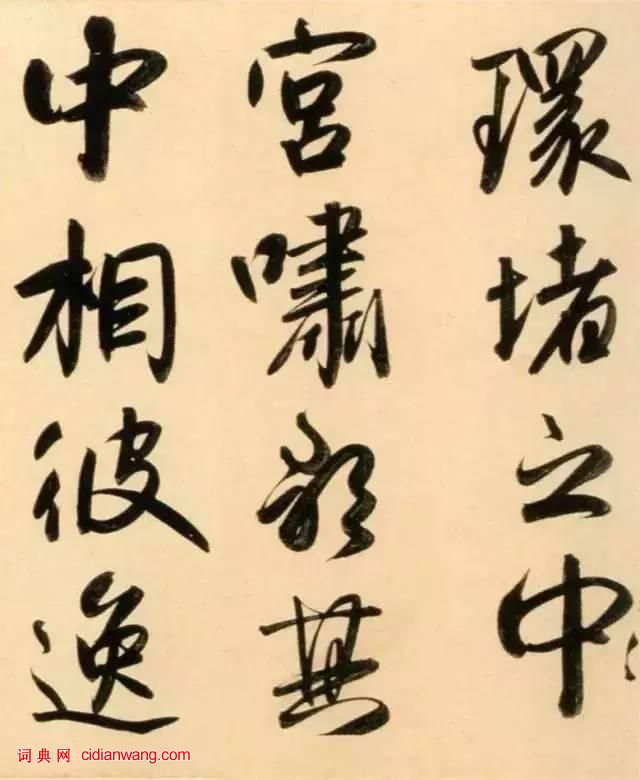 環堵之中
宮嘯歌其
中相彼逸
词典网 cidianwang.com